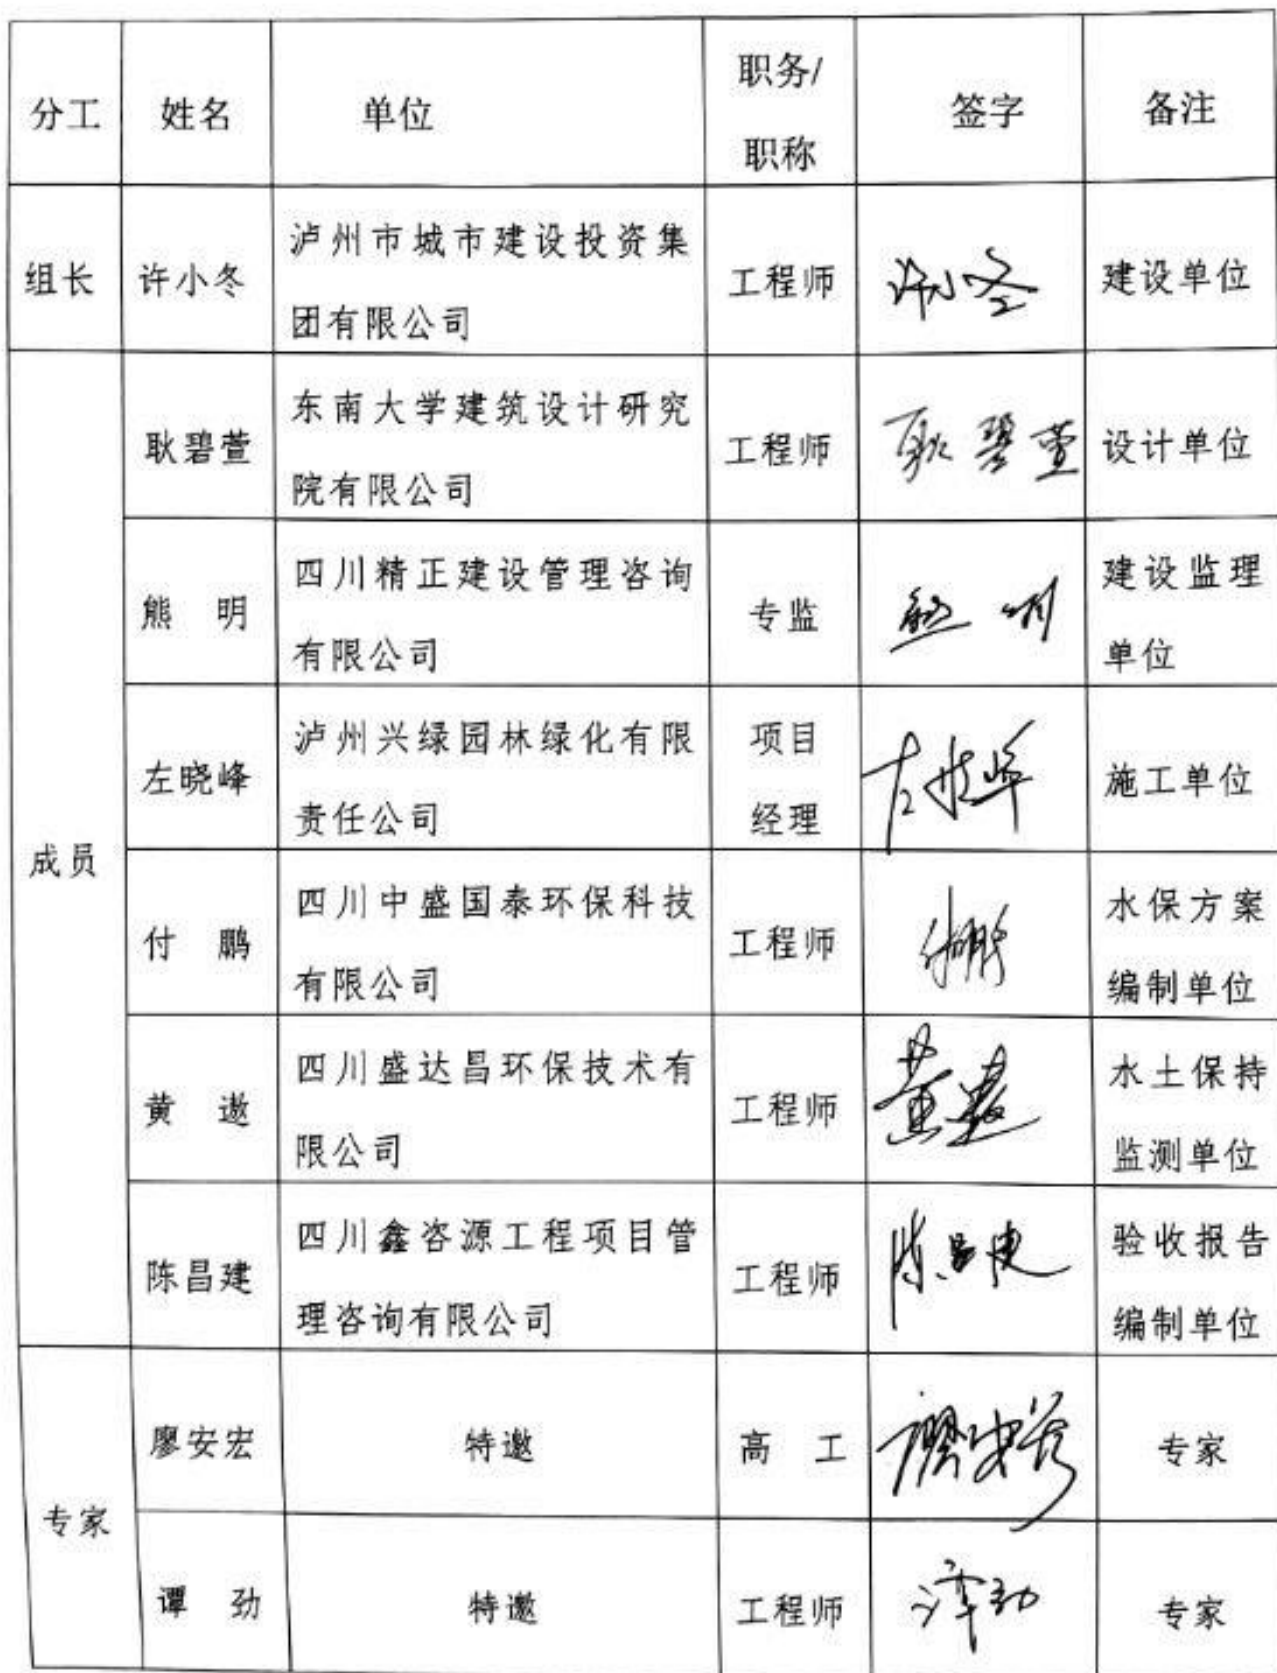 分工 姓名 单位 职务/职称 签字 备注
组长 许小冬 泸州市城市建设投资集团有限公司 工程师 许小冬 建设单位
成员
耿碧萱 东南大学建筑设计研究院有限公司 工程师 耿碧萱 设计单位
熊 明 四川精正建设管理咨询有限公司 专监 熊明 建设监理单位
左晓峰 泸州兴绿园林绿化有限责任公司 项目经理 左晓峰 施工单位
付 鹏 四川中盛国泰环保科技有限公司 工程师 付鹏 水保方案编制单位
黄 遨 四川盛达昌环保技术有限公司 工程师 黄遨 水土保持监测单位
陈昌建 四川鑫咨源工程项目管理咨询有限公司 工程师 陈昌建 验收报告编制单位
专家
廖安宏 特邀 高 工 廖安宏 专家
谭 劲 特邀 工程师 谭劲 专家